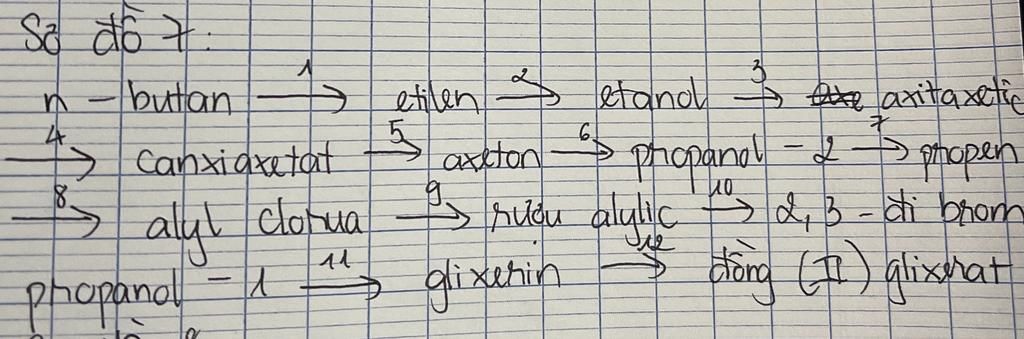 Sơ đồ 7:
n - butan 1→ etilen 2→ etanol 3→ axitaxetic
4→ canxiaxetat 5→ axeton 6→ propanol - 2 7→ propen
8→ alyl clorua 9→ rượu alylic 10→ 2,3 - đi brom
propanol - 1 11→ glixerin 12→ đồng (II) glixerat